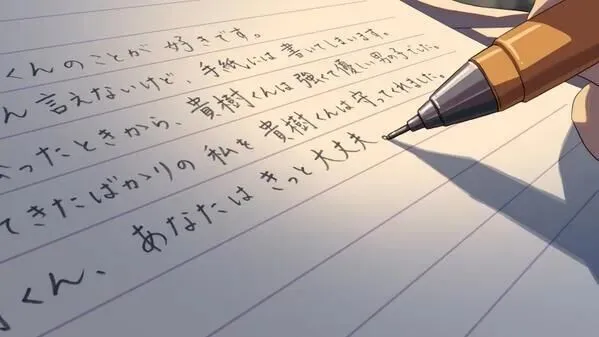 くんのことが 好きです。
ん 言えないけど、手紙には 書いてしまいます。
ったときから、貴樹くんは 強くて優しい男の子でした。
てきたばかりの 私を 貴樹くんは 守ってくれました。
くん、あなたは きっと大丈夫